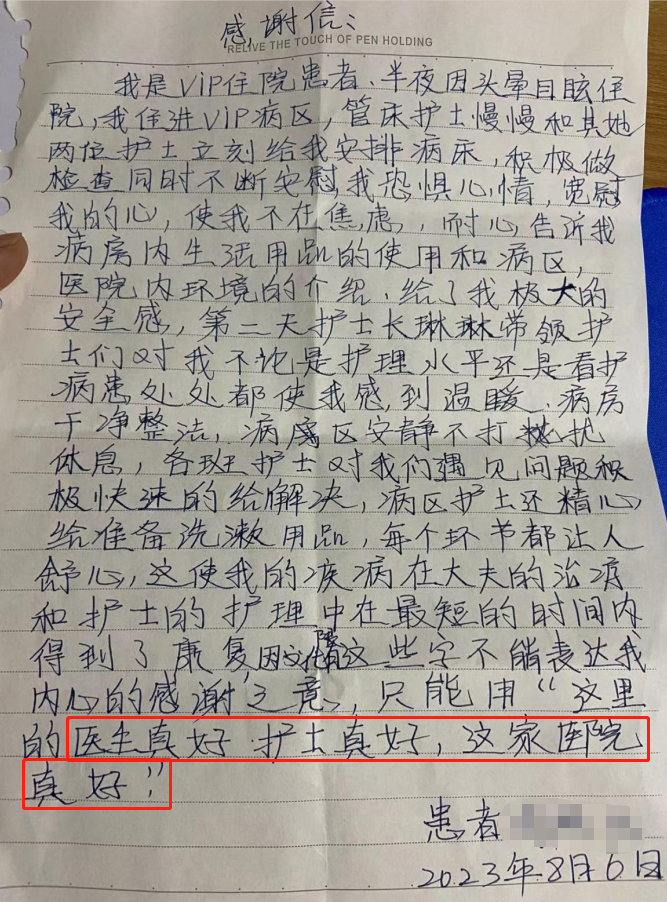 感谢信:
RELIVE THE TOUCH OF PEN HOLDING
我是VIP住院患者、半夜因头晕目眩住
院,我住进VIP病区,管床护士慢慢和其她
两位护士立刻给我安排病床,积极做
检查同时不断安慰我恐惧心情,宽慰
我的心,使我不在焦虑,耐心告诉我
病房内生活用品的使用和病区,
医院内环境的介绍.给了我极大的
安全感,第二天护士长琳琳带领护
士们对我不论是护理水平还是看护
病患处处都使我感到温暖.病房
干净整洁,病区安静不打扰
休息,各班护士对我们遇见问题积
极快速的给解决,病区护士还精心
给准备洗漱用品,每个环节都让人
舒心,这使我的疾病在大夫的治疗
和护士的护理中在最短的时间内
得到了康复,因文化有限这些字不能表达我
内心的感谢之意,只能用“这里
的医生真好 护士真好,这家医院
真好!”
患者
2023年8月6日